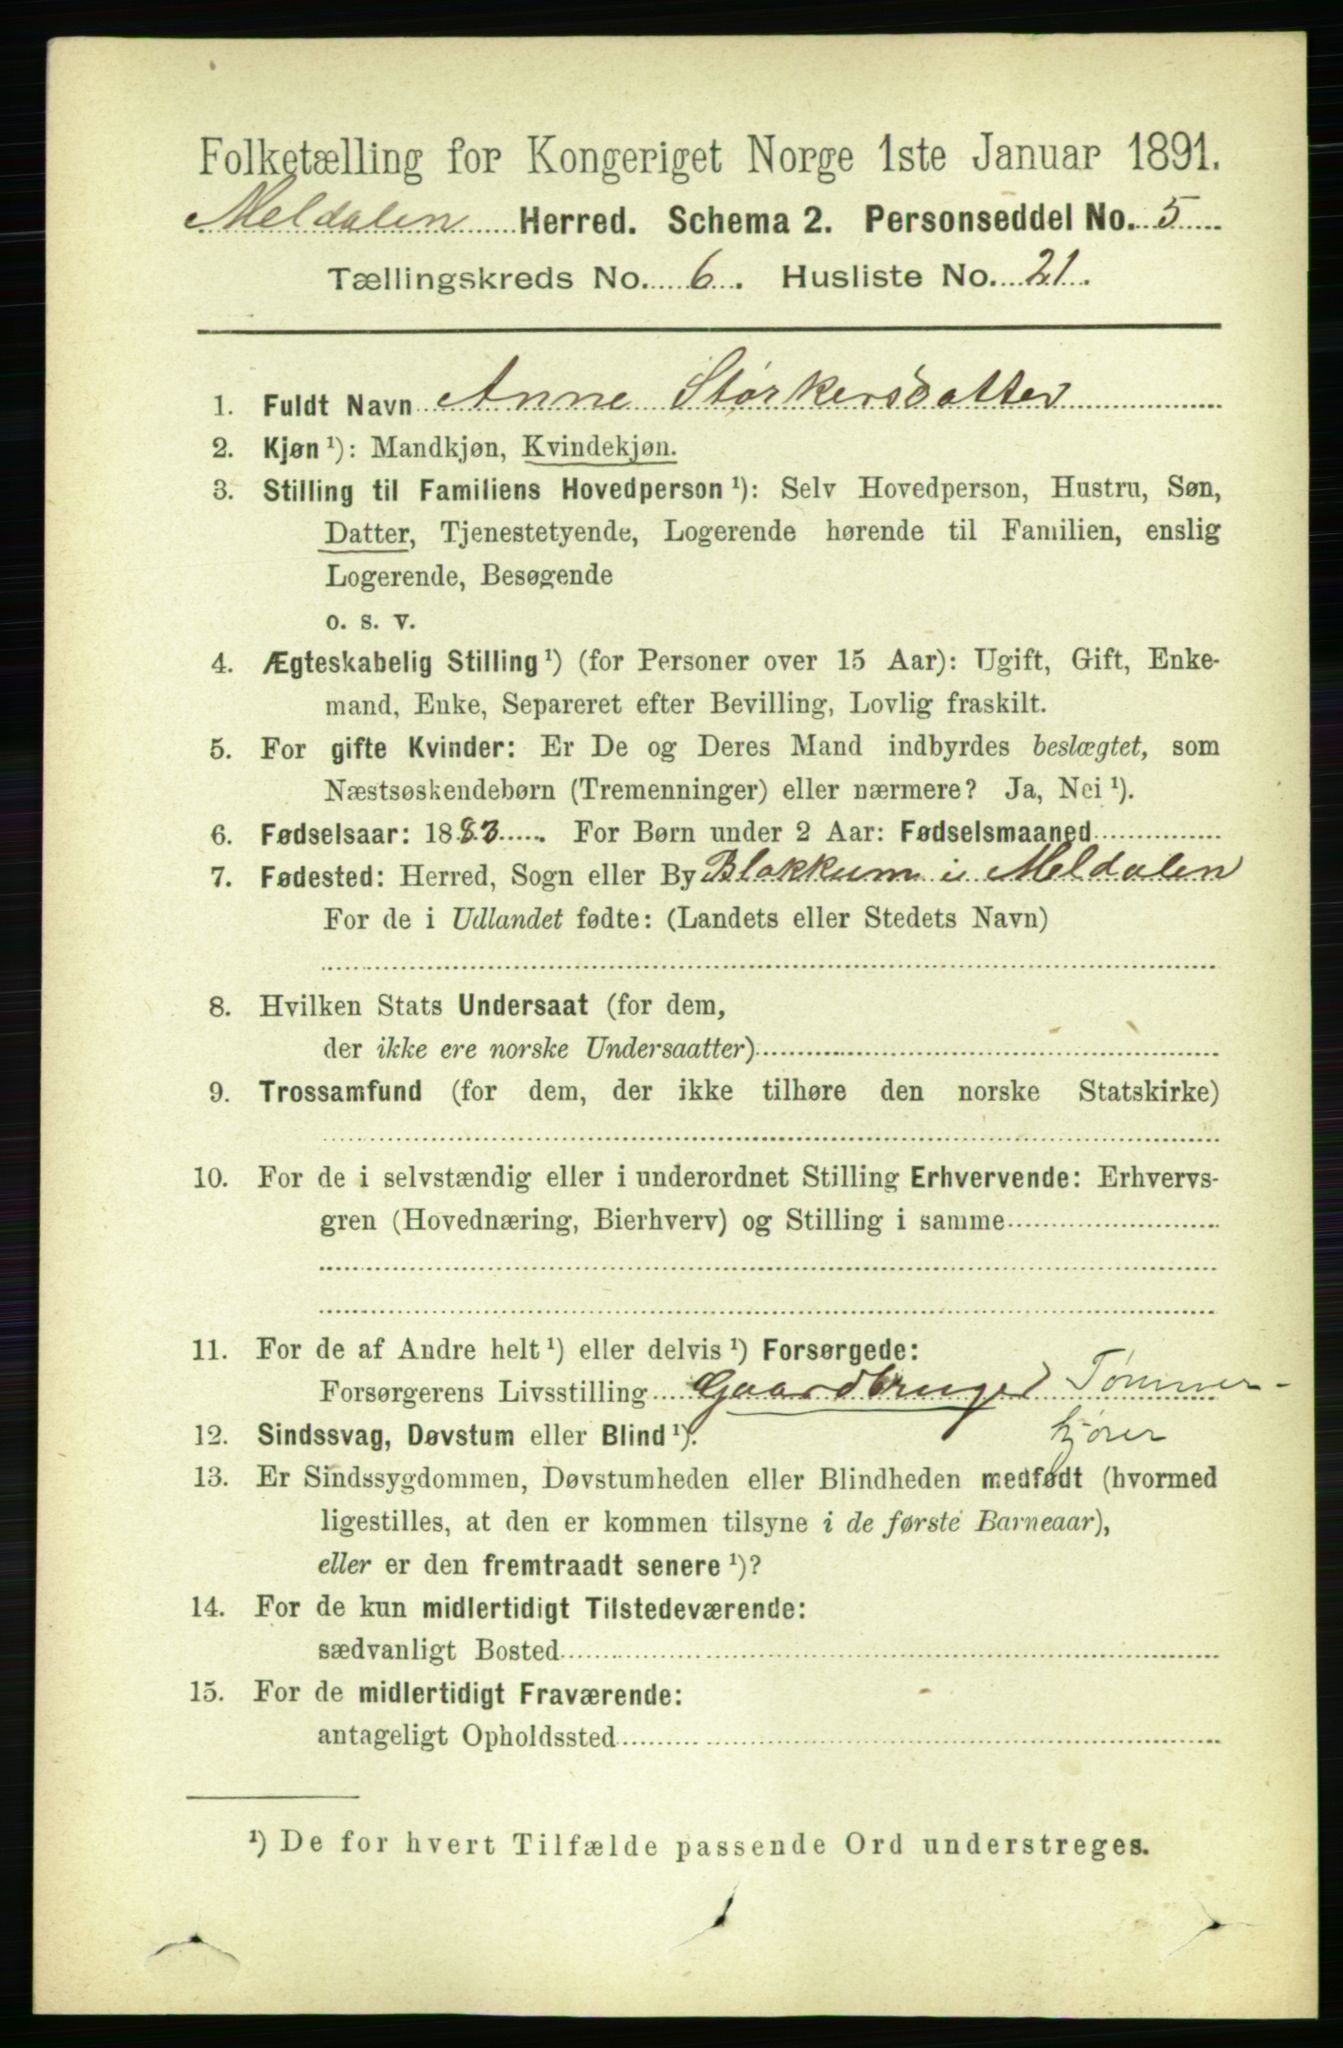 Folketælling for Kongeriget Norge 1ste Januar 1891.
Meldalen Herred. Schema 2. Personseddel No. 5
Tællingskreds No. 6. Husliste No. 21.
1. Fuldt Navn Anne Størkersdatter
2. Kjøn ¹): Mandkjøn, Kvindekjøn.
3. Stilling til Familiens Hovedperson ¹): Selv Hovedperson, Hustru, Søn,
Datter, Tjenestetyende, Logerende hørende til Familien, enslig
Logerende, Besøgende
o. s. v.
4. Ægteskabelig Stilling ¹) (for Personer over 15 Aar): Ugift, Gift, Enke-
mand, Enke, Separeret efter Bevilling, Lovlig fraskilt.
5. For gifte Kvinder: Er De og Deres Mand indbyrdes beslægtet, som
Næstsøskendebørn (Tremenninger) eller nærmere? Ja, Nei ¹).
6. Fødselsaar: 1883 For Børn under 2 Aar: Fødselsmaaned
7. Fødested: Herred, Sogn eller By Blokkum i Meldalen
For de i Udlandet fødte: (Landets eller Stedets Navn)
8. Hvilken Stats Undersaat (for dem,
der ikke ere norske Undersaatter)
9. Trossamfund (for dem, der ikke tilhøre den norske Statskirke)
10. For de i selvstændig eller i underordnet Stilling Erhvervende: Erhvervs-
gren (Hovednæring, Bierhverv) og Stilling i samme
11. For de af Andre helt ¹) eller delvis ¹) Forsørgede:
Forsørgerens Livsstilling Gaardbruger Tømmer-
kjører
12. Sindssvag, Døvstum eller Blind ¹).
13. Er Sindssygdommen, Døvstumheden eller Blindheden medfødt (hvormed
ligestilles, at den er kommen tilsyne i de første Barneaar),
eller er den fremtraadt senere ¹)?
14. For de kun midlertidigt Tilstedeværende:
sædvanligt Bosted
15. For de midlertidigt Fraværende:
antageligt Opholdssted
¹) De for hvert Tilfælde passende Ord understreges.